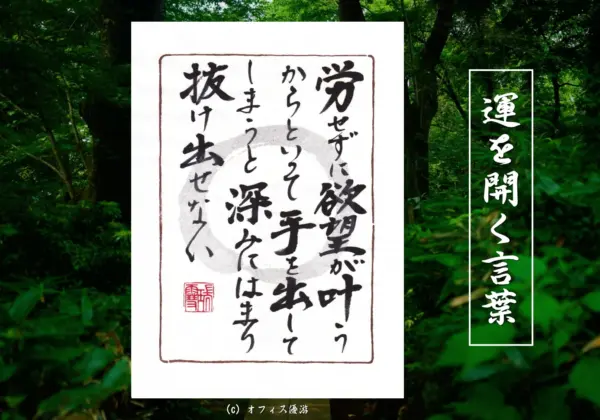 運を開く言葉
労せずに欲望が叶う
からといって手を出して
しまうと深みにはまり
抜け出せない
(C) オフィス優游